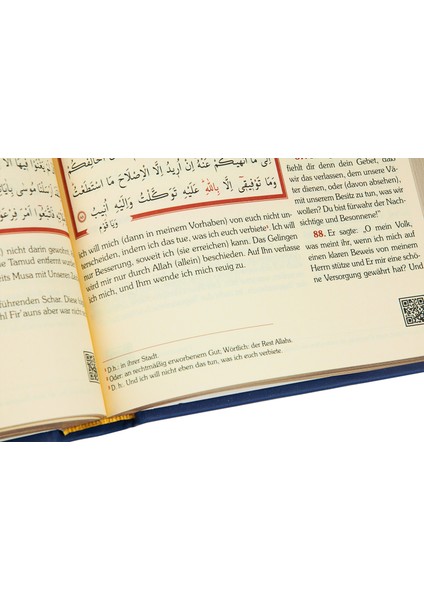 مَا أَنْهٰيكُمْ عَنْهُ اِنْ اُر۪يدُ اِلَّا الْاِصْلَاحَ مَا اسْتَطَعْتُ
وَمَا تَوْف۪يق۪ٓي اِلَّا بِاللّٰهِ عَلَيْهِ تَوَكَّلْتُ وَاِلَيْهِ اُن۪يبُ
وَيَا قَوْمِ
ich will mich (dann in meinem Vorhaben) von euch nicht un-
terscheiden, indem ich das tue, was ich euch verbiete³. Ich will
nur Besserung, soweit ich (sie erreichen) kann. Das Gelingen
wird mir nur durch Allah (allein) beschieden. Auf Ihn verlasse
ich mich, und Ihm wende ich mich reuig zu.
¹ D.h.: in ihrer Stadt.
² Oder: an rechtmäßig erworbenem Gut; Wörtlich: der Rest Allahs.
³ D. h.: Und ich will nicht eben das tun, was ich euch verbiete.
fiehlt dir denn dein Gebet, daß
wir das verlassen, dem unsere Vä-
ter dienen, oder (davon absehen),
mit unserem Besitz zu tun, was wir
wollen? Du bist fürwahr der Nach-
sichtige und Besonnene!"
88. Er sagte: „O mein Volk,
was meint ihr, wenn ich mich auf
einen klaren Beweis von meinem
Herrn stütze und Er mir eine schö-
ne Versorgung gewährt hat? Und
) nicht darin gewohnt,
e Tamud entfernt wurde
its Musa mit Unseren
führenden Schar. Diese
hl Fir'auns aber war nicht